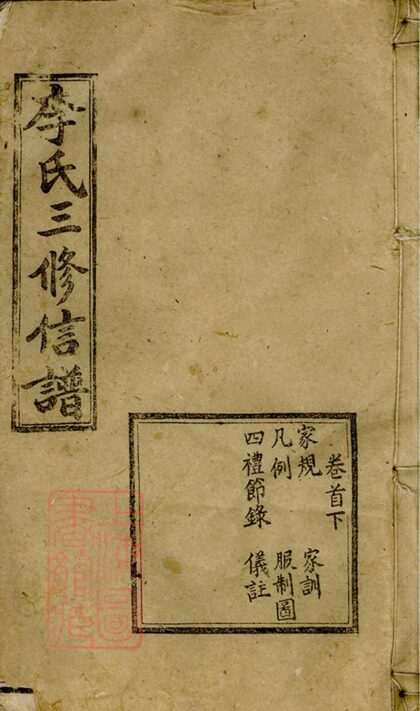 李氏三修信譜
卷首下
家規 家訓
凡例 服制圖
四禮節錄 儀註
上海圖書館藏